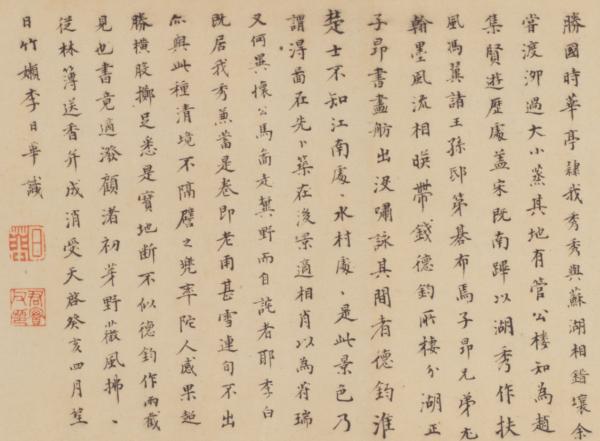 勝國時華亭隸我秀秀與蘇湖相錯壤余
嘗渡泖過大小蒸其地有管公樓知為趙
集賢遊歷處蓋宋既南蹕以湖秀作扶
風馮翼諸王孫邸第棊布焉子昂兄弟尤
翰墨風流相暎帶錢德鈞所棲分湖正
子昂書畫舫出沒嘯詠其間者德鈞淮
楚士不知江南處〻水村處〻是此景色乃
謂得啚在先卜築在後景適相肖以為符瑞
又何異懷公馬啚走冀野而自詫者耶李白
既居我秀兼蓄是卷即老甫甚雪連旬不出
亦與此種清境不隔譬之兜率陀人感果超
勝橫股擲足悉是寶地斷不似德鈞作兩截
見也書竟適潑顧渚初芽野薇風拂〻
從林薄送香并成消受天啓癸亥四月望
日竹嬾李日華識
日華